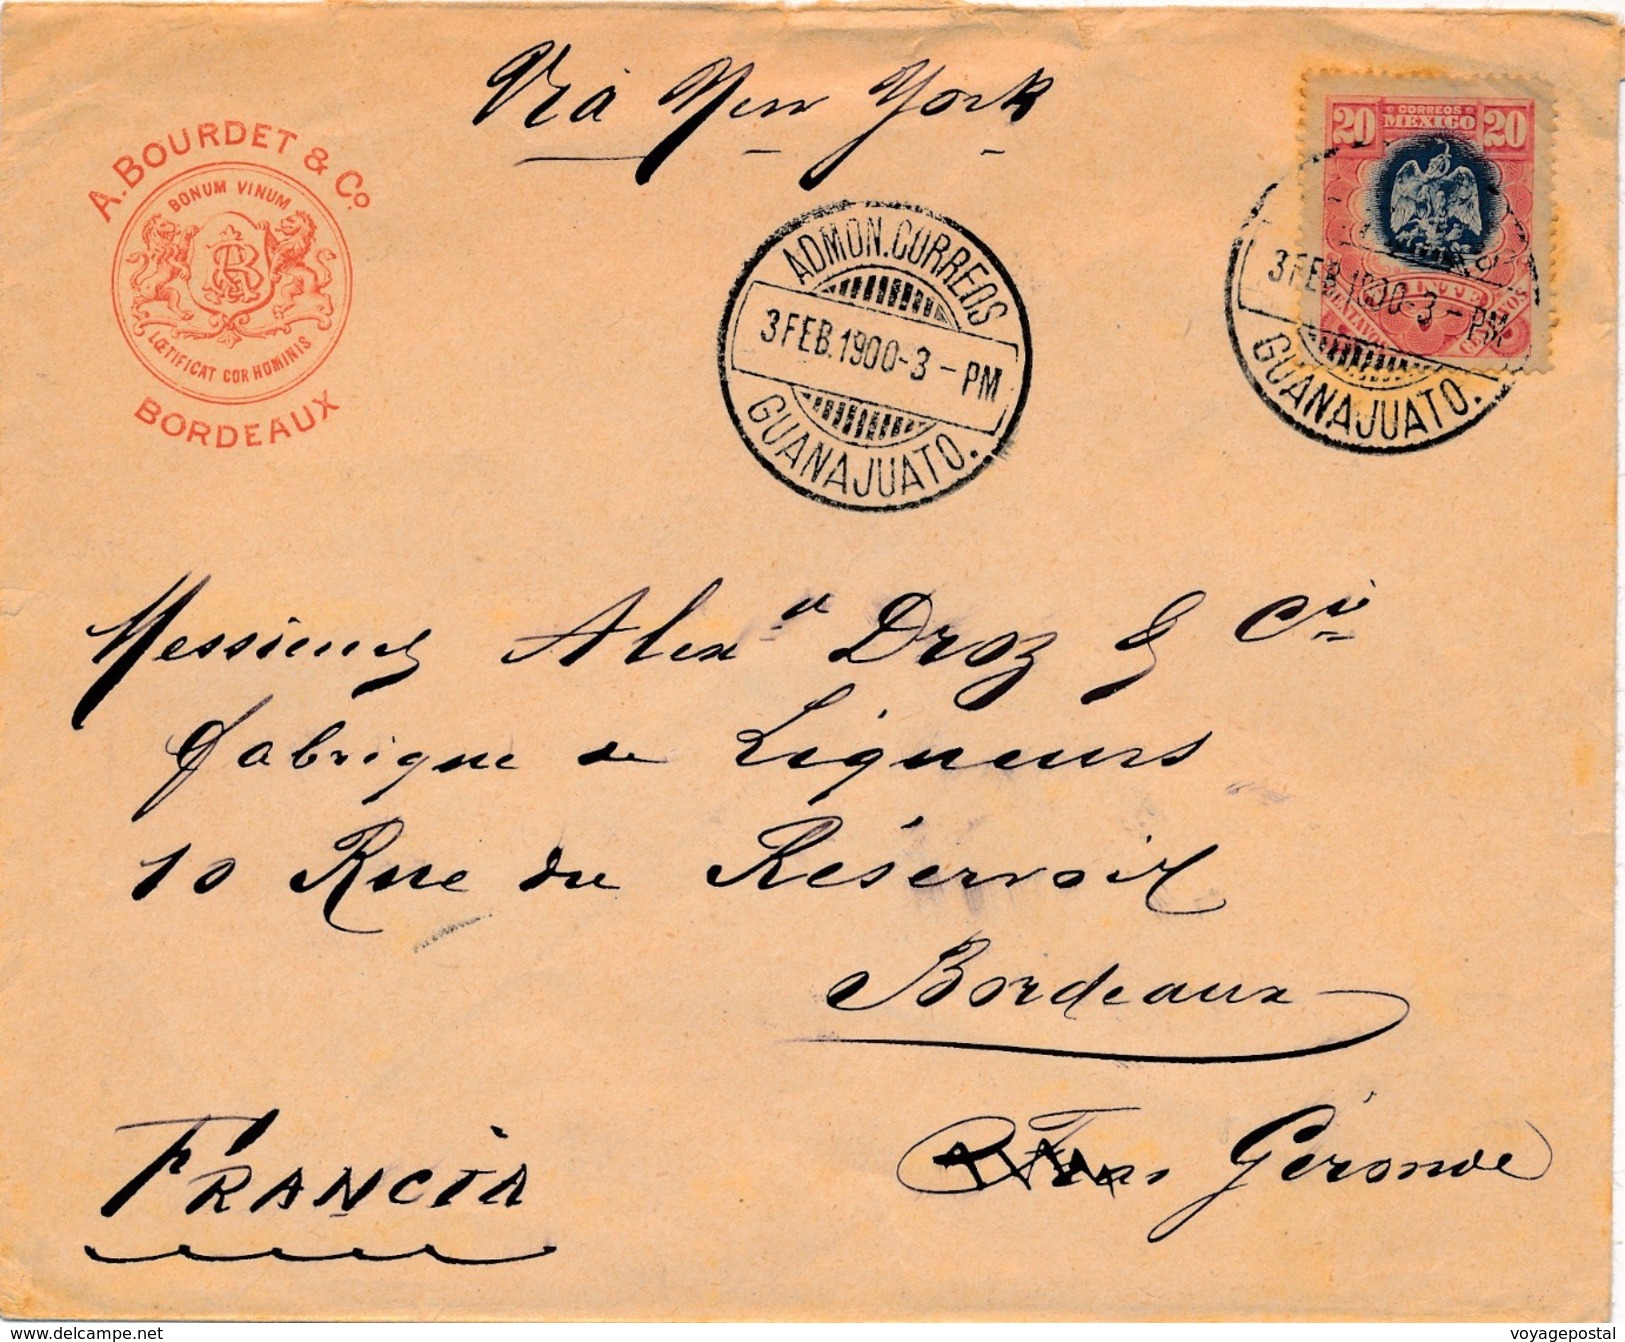 Via New York
A. BOURDET & Co.
BONUM VINUM
LŒTIFICAT COR HOMINIS
BORDEAUX
CORREOS
MEXICO
20 20
VEINTE
CENTAVOS CENTAVOS
ADMON. CORREOS
3 FEB. 1900-3-PM
GUANAJUATO.
3 FEB. 1900-3-PM
GUANAJUATO.
Messieurs Alex.ᵈ Droz & Cⁱᵉ
fabrique de Liqueurs
10 Rue du Réservoir
Bordeaux
Géronde
FRANCIA
delcampe.net
voyagepostal